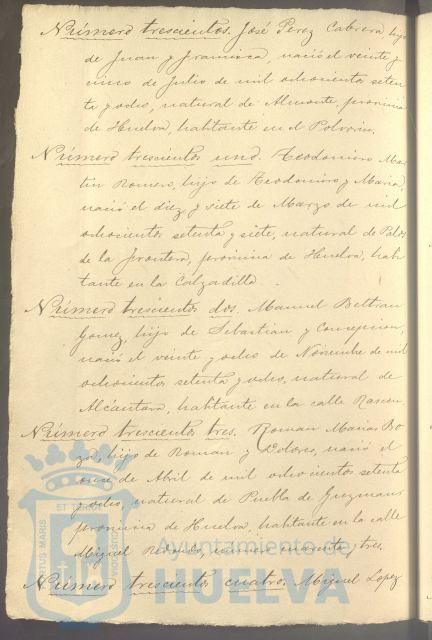 Número trescientos. José Perez Cabrera, hijo
de Juan y Francisca, nació el veinte y
cinco de Julio de mil ochocientos seten
ta y ocho, natural de Almonte, provincia
de Huelva, habitante en el Polvorin.
Número trescientos uno. Teodomiro Mar
tin Romero, hijo de Teodomiro y Maria,
nació el diez y siete de Marzo de mil
ochocientos setenta y siete, natural de Palos
de la Frontera, provincia de Huelva, habi
tante en la Calzadilla.
Número trescientos dos. Manuel Beltran
Gomez, hijo de Sebastian y Concepcion,
nació el veinte y ocho de Noviembre de mil
ochocientos setenta y ocho, natural de
Alcántara, habitante en la calle Rascon.
Número trescientos tres. Roman Macias Bo
za, hijo de Roman y Dolores, nació el
once de Abril de mil ochocientos setenta
y ocho, natural de Puebla de Guzman,
provincia de Huelva, habitante en la calle
Miguel Redondo, número cuarenta y tres.
Número trescientos cuatro. Miguel Lopez
PORTUS MARIS
ET TERRÆ
CUSTODIA
Ayuntamiento de
HUELVA